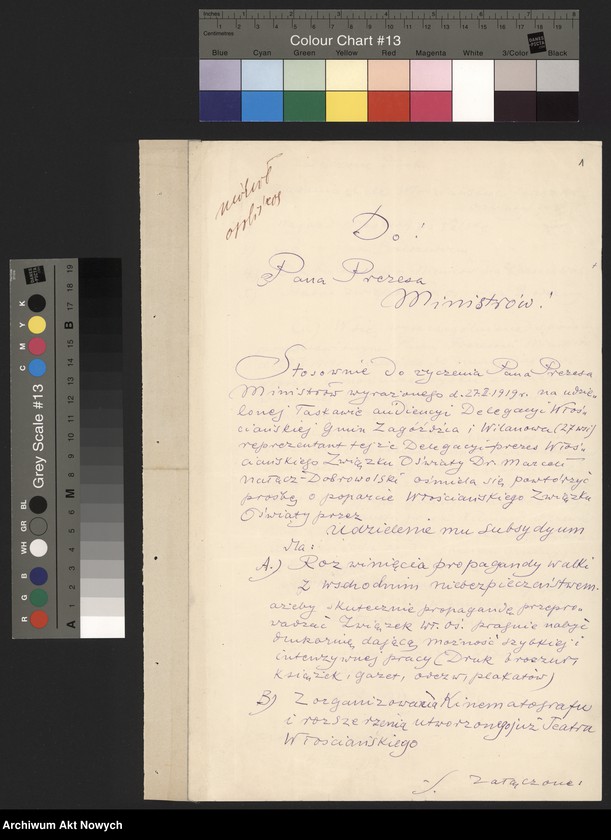 Inches
Centimetres
Colour Chart #13
Blue Cyan Green Yellow Red Magenta White 3/Color Black
Grey Scale #13
1
mówił
Do!
Pana Prezesa
Ministrów!
Stosownie do życzenia Pana Prezesa
Ministrów wyrażonego d. 27 II 1919 r. na udzie-
lonej łaskawie audiencyi Delegacyi Włoś-
ciańskiej Gmin Zagóźdźa i Wilanowa (27 wsi)
reprezentant tejże Delegacyi-prezes Włoś-
ciańskiego Związku Oświaty Dr.
Nałęcz-Dobrowolski ośmiela się powtórzyć
prośbę o poparcie Włościańskiego Związku
Oświaty przez
Udzielenie mu Subsydyum
dla:
A.) Rozwinięcia propagandy walki
z wschodnim niebezpieczeństwem.
ażeby skutecznie propagandę przepro-
wadzać Związek wł. oś. pragnie nabyć
drukarnię, dającą możność szybkiej i
intenzywnej pracy (Druk broszur,
książek, gazet, odezw, plakatów)
B) Zorganizowania Kinematografu
i rozszerzenia utworzonego już Teatru
Włościańskiego
Załączone:
Archiwum Akt Nowych